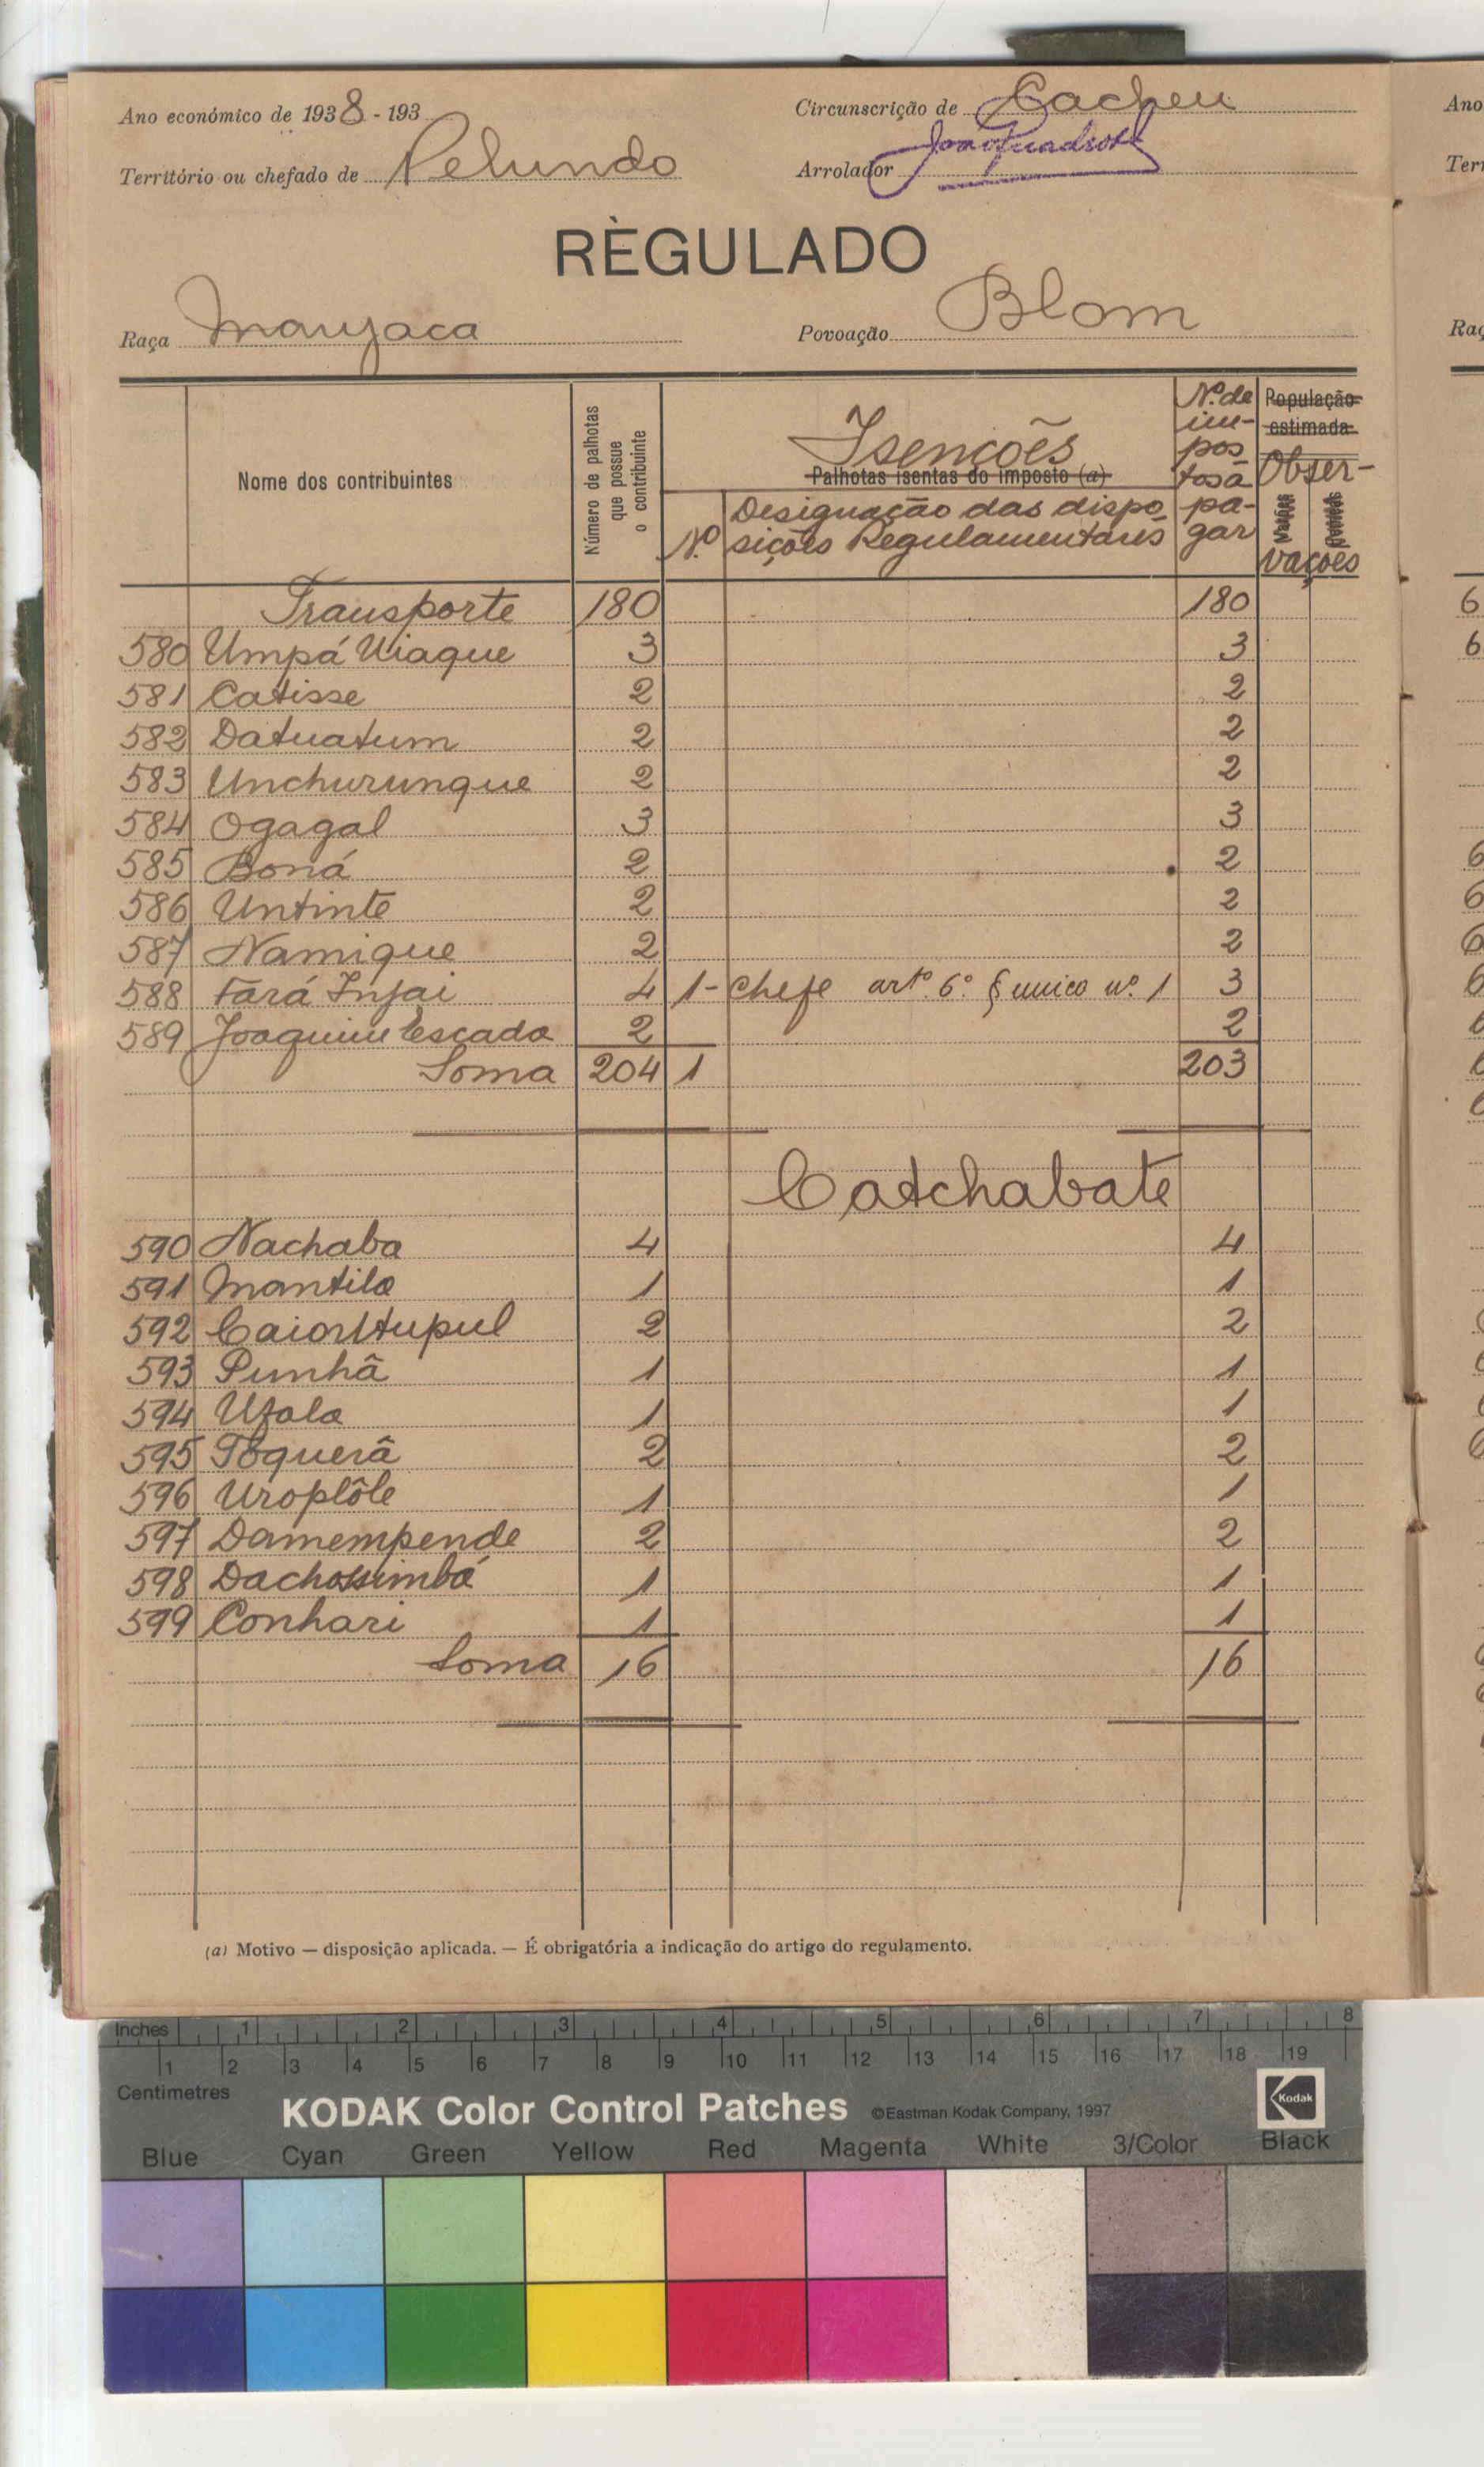 Ano económico de 1938 - 193
Circunscrição de Cacheu
Território ou chefado de Pelundo
Arrolador
RÈGULADO
Raça Manjaca
Povoação Blom
Nome dos contribuintes
Número de palhotas que possue o contribuinte
Isenções
Palhotas isentas do imposto (a)
Nº
Designação das disposições Regulamentares
Nº. de impostos a pagar
População estimada
Observações
Transporte 180 180
580 Umpá Uiaque 3 3
581 Catisse 2 2
582 Datuatum 2 2
583 Unchurunque 2 2
584 Ogagal 3 3
585 Boná 2 2
586 Untinte 2 2
587 Namique 2 2
588 Fará Injai 4 1 - Chefe artº. 6º § unico nº. 1 3
589 Joaquim Escada 2 2
Soma 204 1 203
Catchabate
590 Nachaba 4 4
591 Mantila 1 1
592 2 2
593 Punhâ 1 1
594 Ufala 1 1
595 Toquerâ 2 2
596 Uroplôle 1 1
597 Damempende 2 2
598 1 1
599 Conhari 1 1
Soma 16 16
(a) Motivo — disposição aplicada. — É obrigatória a indicação do artigo do regulamento.
Ano
Raç
Inches 1 2 3 4 5 6 7 8
1 2 3 4 5 6 7 8 9 10 11 12 13 14 15 16 17 18 19
Centimetres
KODAK Color Control Patches ©Eastman Kodak Company, 1997 Kodak
Blue Cyan Green Yellow Red Magenta White 3/Color Black